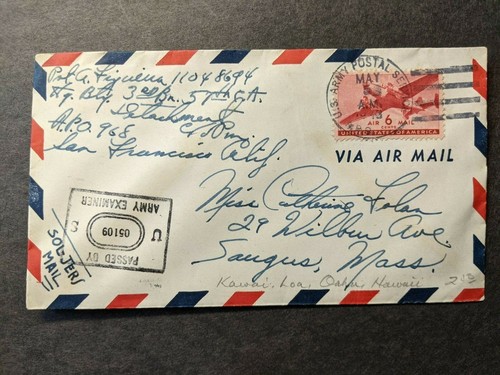 Pvt. A. Figueira 11048694
Hq. Bty. 3rd Bn. 57th C.A.
Detachment
A.P.O. 968
San Francisco Calif.
U.S. ARMY POSTAL
MAY
A.M.
AIR 6 MAIL
CENTS
UNITED STATES OF AMERICA
VIA AIR MAIL
Miss Catherine Folan
29 Wilbur Ave.
Saugus, Mass.
PASSED BY
U 05109 S
ARMY EXAMINER
SOLDIERS
MAIL
Kawai. Loa, Oahu, Hawaii